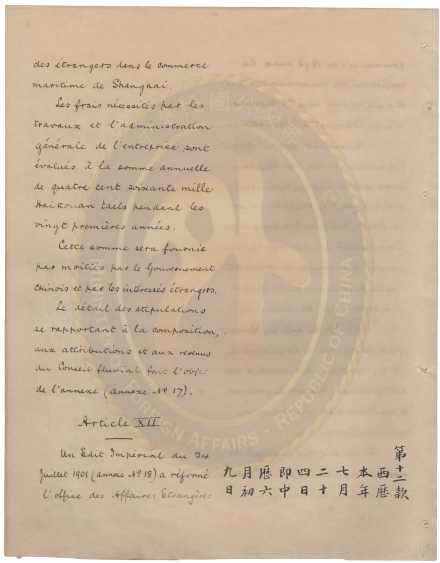 des étrangers dans le commerce
maritime de Shanghai.
Les frais nécessités par les
travaux et l'administration
générale de l'entreprise sont
évalués à la somme annuelle
de quatre cent soixante mille
Haikouan taels pendant les
vingt premières années.
Cette somme sera fournie
par moitiés par le Gouvernement
chinois et par les intéressés étrangers.
Le détail des stipulations
se rapportant à la composition,
aux attributions et aux revenus
du Conseil fluvial fait l'objet
de l'annexe (annexe No 17).
Article XII
Un Edit Impérial du 24
Juillet 1901 (annexe No 18) a réformé
l'office des Affaires Etrangères
第十二款
西曆
本年
七月
二十
四日
即中
曆六
月初
九日
FOREIGN AFFAIRS - REPUBLIC OF CHINA